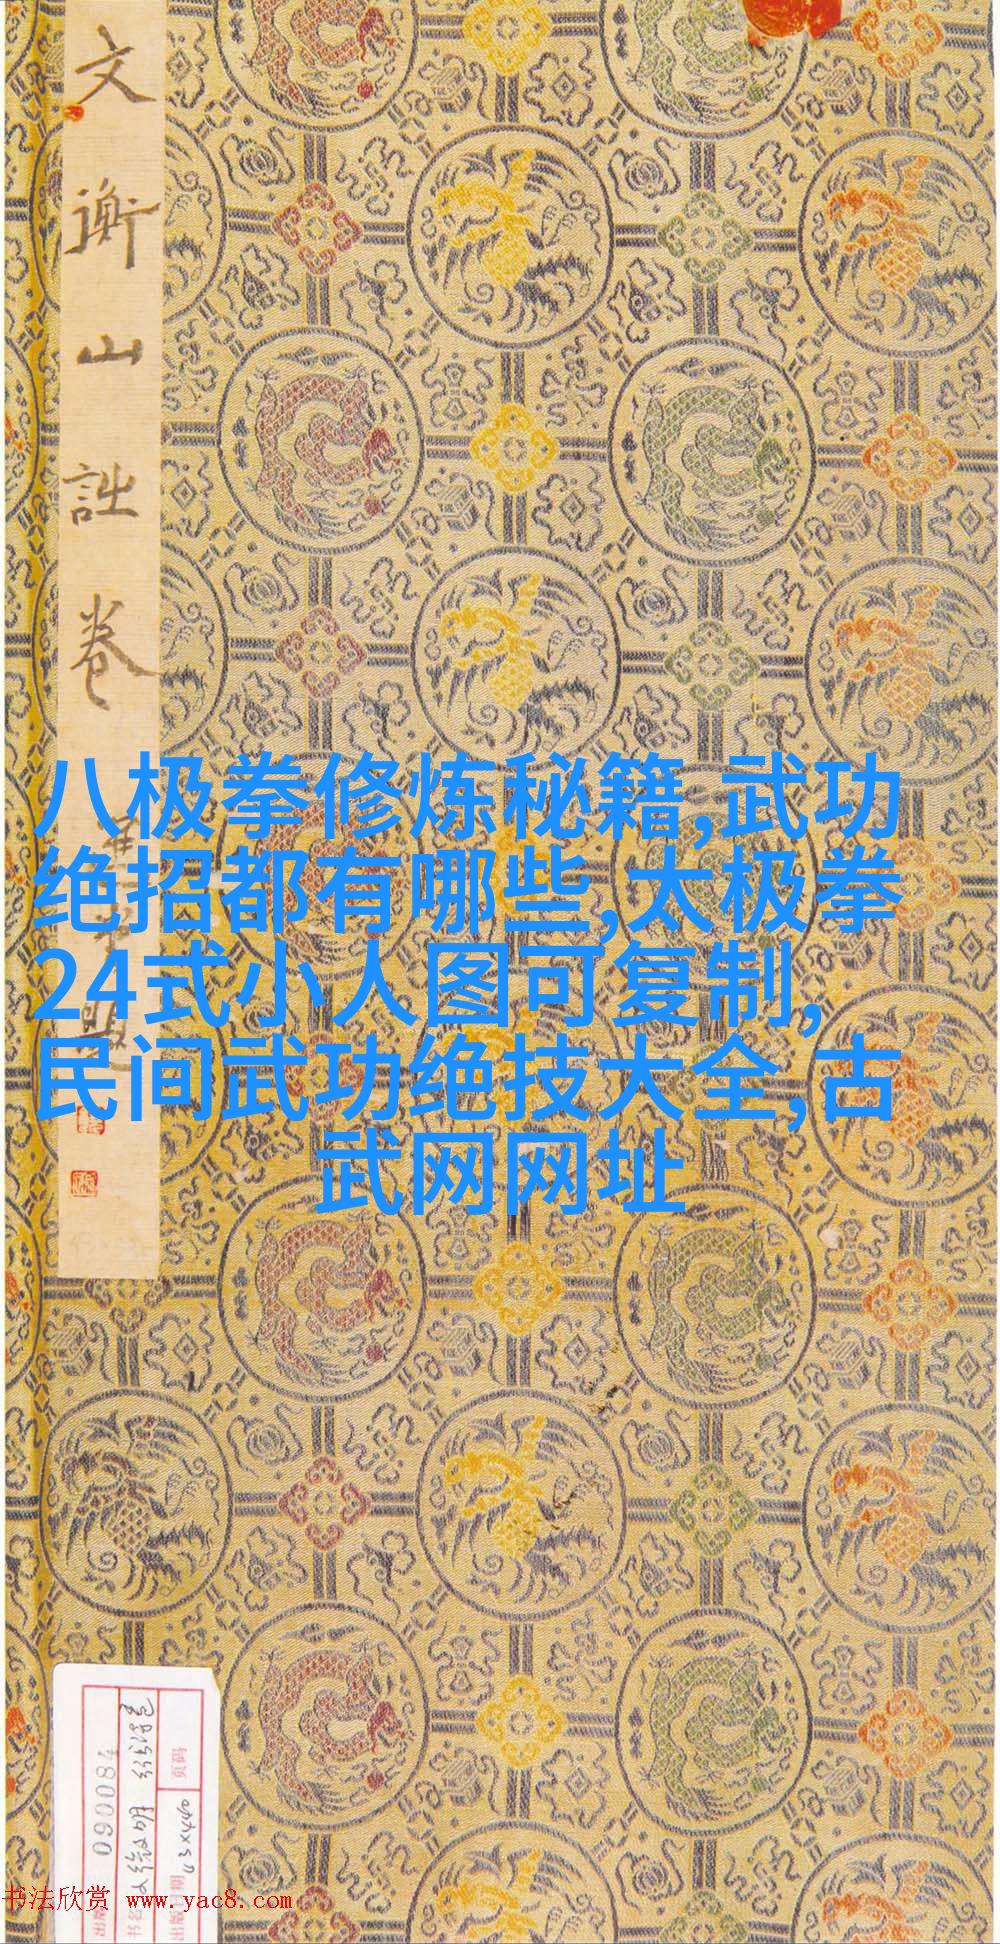 文衡山詩卷
八极拳修炼秘籍,武功
绝招都有哪些,太极拳
24式小人图可复制,
民间武功绝技大全,古
武网网址
090084
页码
43x440
书法欣赏 www.yac8.com